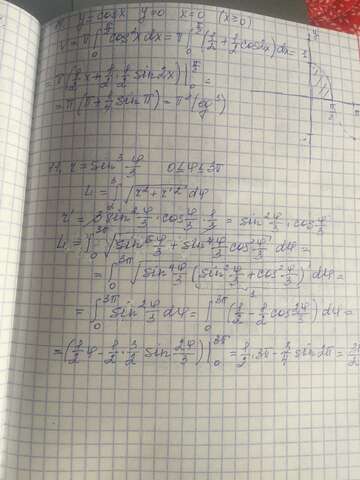 y=cosx y=0 x=0 (x≥0)
V = π∫₀^(π/2) cos²x dx = π∫₀^(π/2) (1/2 + 1/2 cos2x) dx =
= π(1/2 x + 1/2 · 1/2 sin2x)|₀^(π/2) =
= π(π + 1/4 sin π) = π² (ед³)
11. r = sin³ φ/3 0≤φ≤3π
L = ∫ √(r² + r'²) dφ
r' = 3 sin² φ/3 · cos φ/3 · 1/3 = sin² φ/3 · cos φ/3
L = ∫₀^(3π) √(sin⁶ φ/3 + sin⁴ φ/3 cos² φ/3) dφ =
= ∫₀^(3π) √(sin⁴ φ/3 (sin² φ/3 + cos² φ/3)) dφ =
= ∫₀^(3π) sin² φ/3 dφ = ∫₀^(3π) (1/2 - 1/2 cos 2φ/3) dφ =
= (1/2 φ - 1/2 · 3/2 sin 2φ/3)|₀^(3π) = 1/2 · 3π - 3/4 sin 2π =